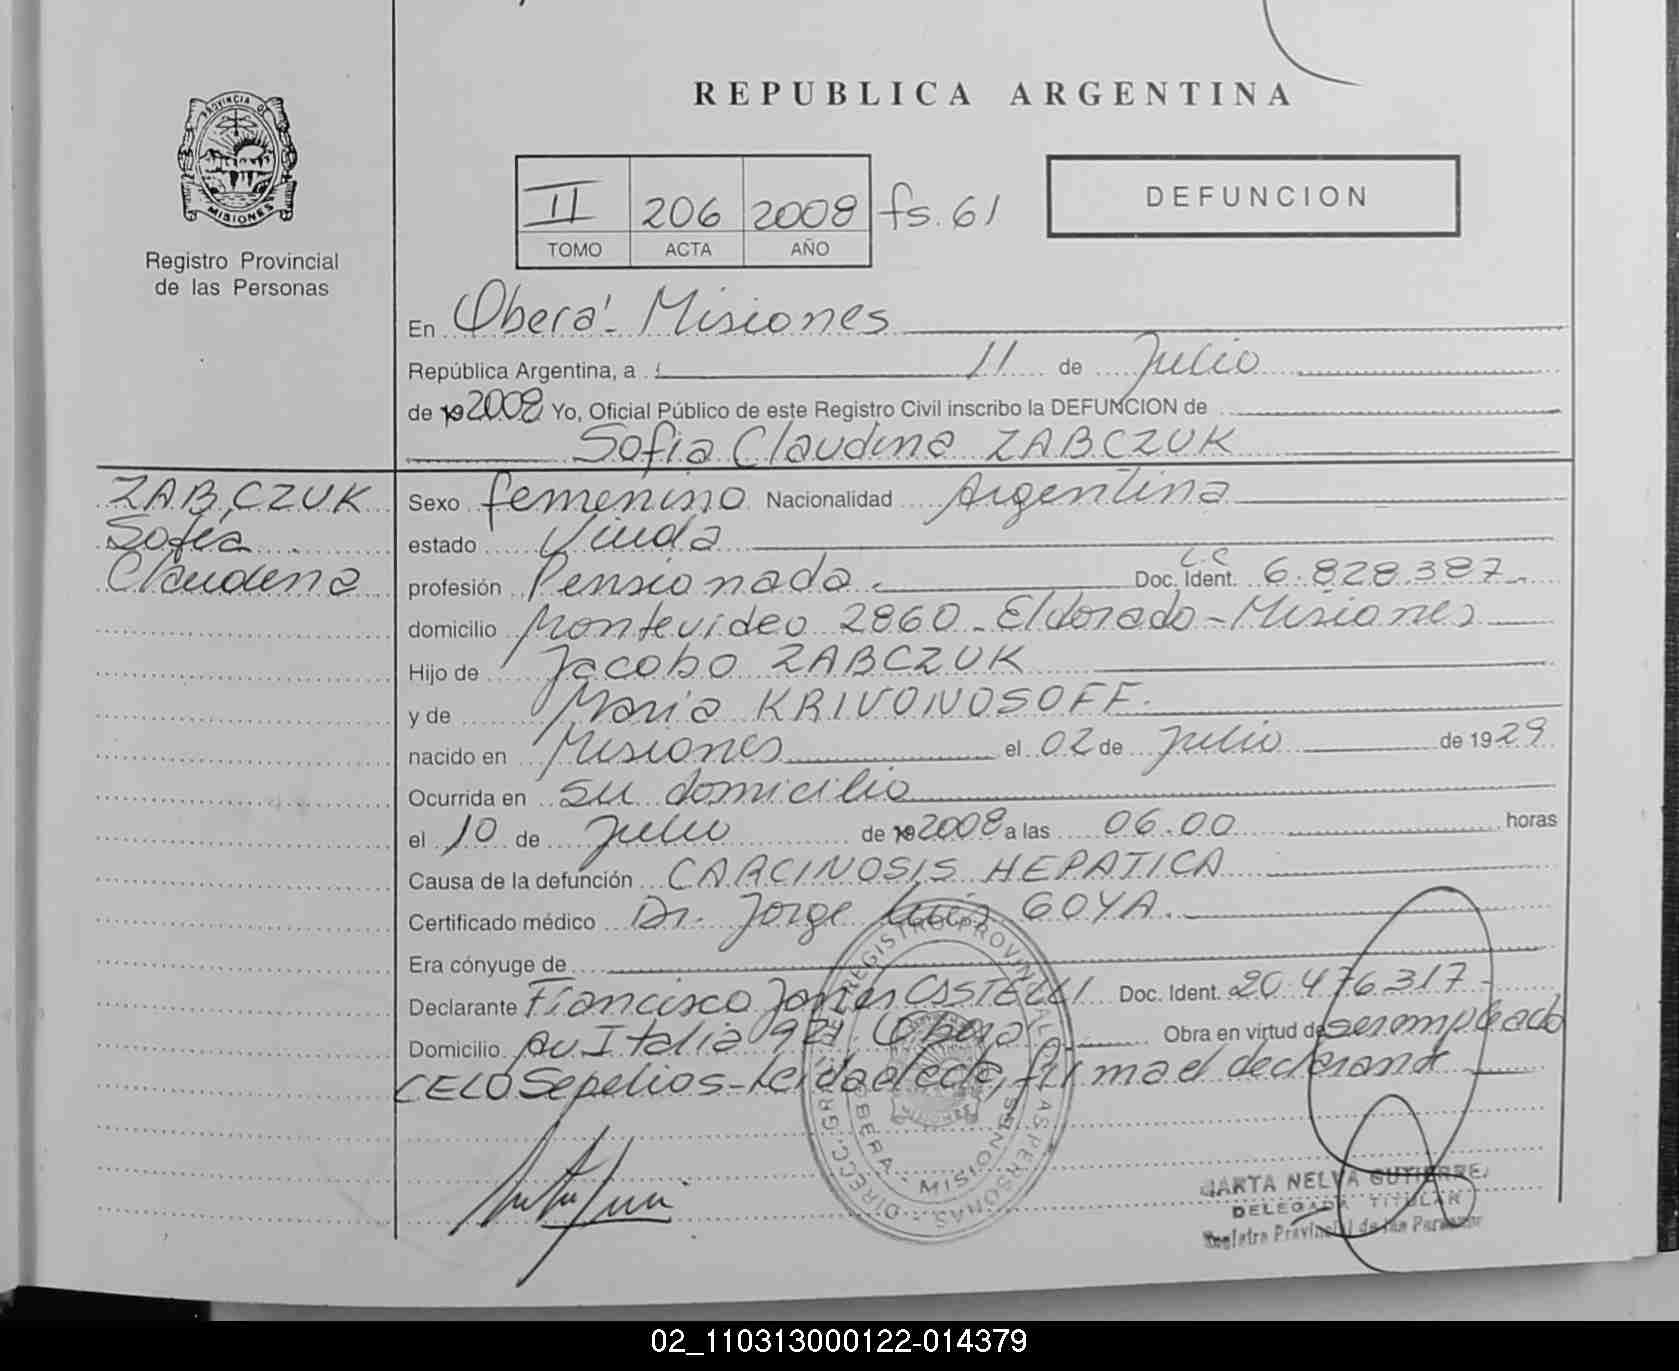 REPUBLICA ARGENTINA
PROVINCIA DE
MISIONES
Registro Provincial
de las Personas
II 206 2008 fs. 61
TOMO ACTA AÑO
DEFUNCION
En Oberá - Misiones
República Argentina, a 11 de Julio
de 2008 Yo, Oficial Público de este Registro Civil inscribo la DEFUNCION de
Sofia Claudina ZABCZUK
ZABCZUK
Sofia
Claudina
Sexo femenino Nacionalidad Argentina
estado Viuda
profesión Pensionada. Doc. Ident. L.C 6.828.387
domicilio Montevideo 2860 - Eldorado - Misiones
Hijo de Jacobo ZABCZUK
y de Maria KRIVONOSOFF.
nacido en Misiones el 02 de Julio de 1929
Ocurrida en su domicilio
el 10 de Julio de 2008 a las 06.00 horas
Causa de la defunción CARCINOSIS HEPATICA
Certificado médico Dr. Jorge Luis GOYA.
Era cónyuge de
Declarante Francisco Javier CASTELLI Doc. Ident. 20.476.317
Domicilio Av. Italia 921 Oberá Obra en virtud de ser empleado
CELO Sepelios - Leida el acta, firma el declarante
DIRECC. GRAL. DEL REGISTRO PROVINCIAL DE LAS PERSONAS
OBERA - MISIONES
MARTA NELVA GUTIERREZ
DELEGADA TITULAR
Registro Provincial de las Personas
02_110313000122-014379